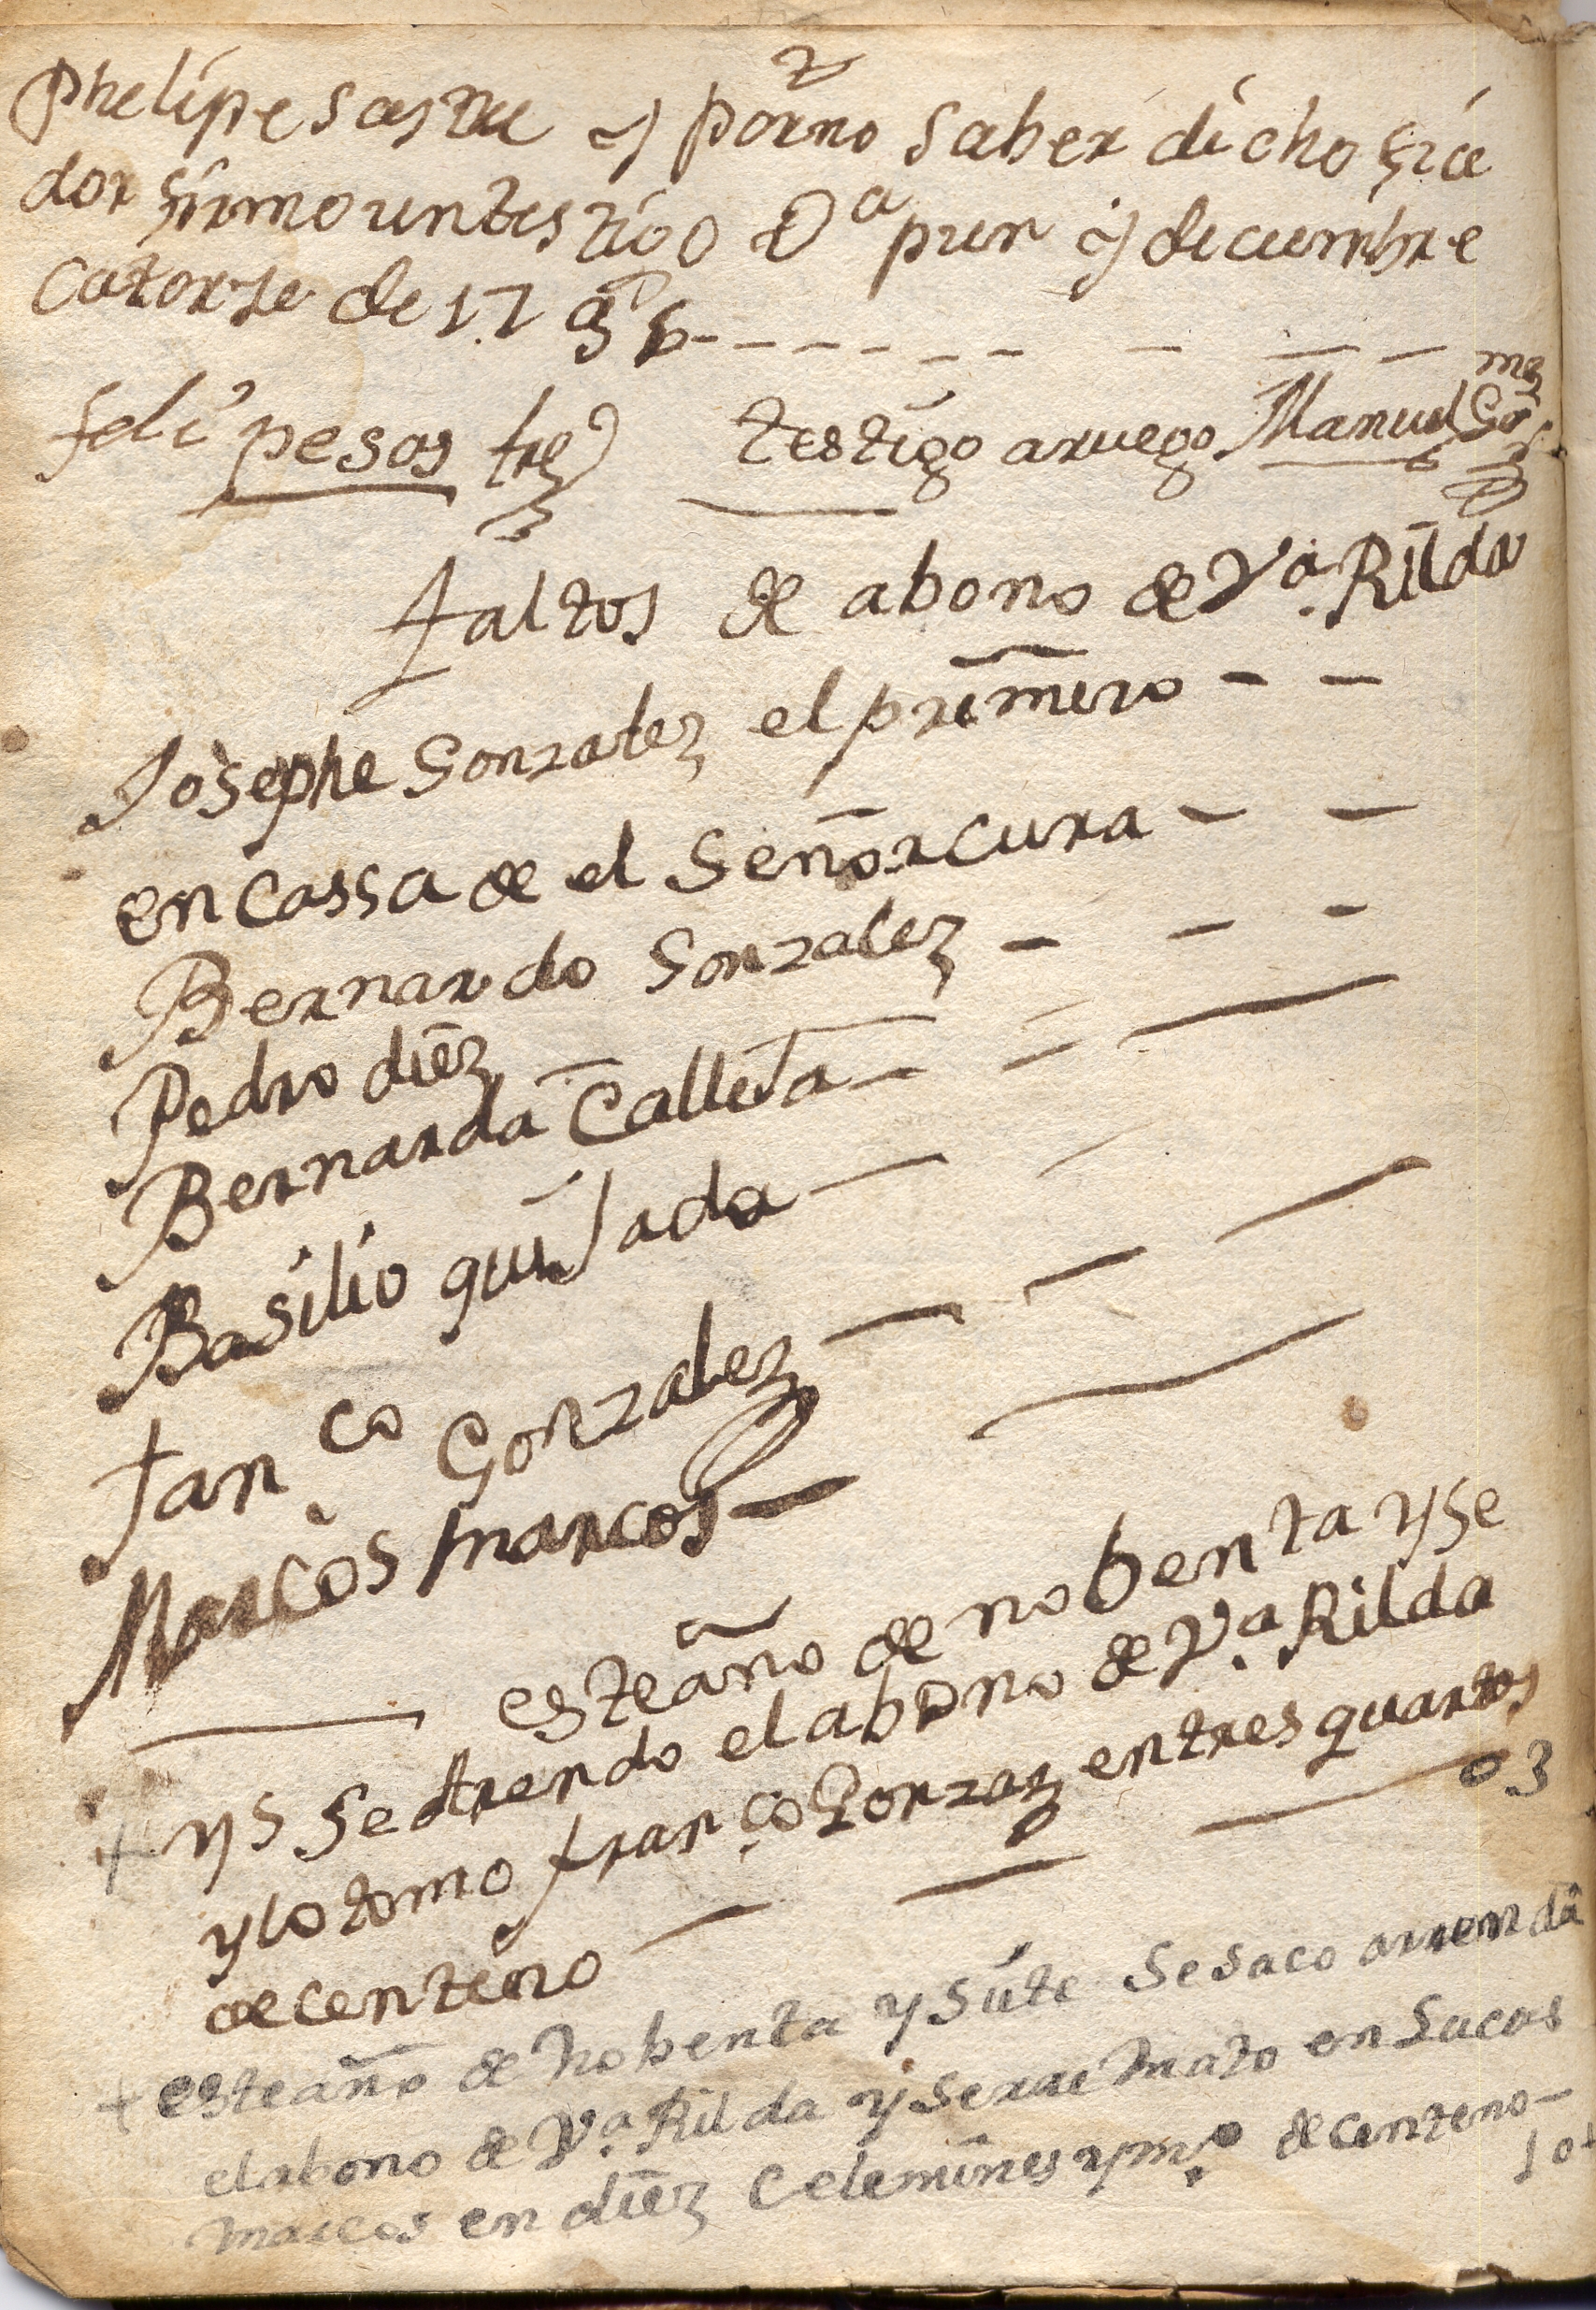 Phelipe sastre y porno saber dicho fia
dor firmo untestigo Dª pur y diciembre
Catorse de 17
feli pesos tre testigo aruego Manuel Go mez
faltos de abono de Vª Rilda
Josephe Gonzalez el primero - -
en Cassa de el Señor Cura - -
Bernardo Gonzalez - - -
Pedro diez
Bernarda CalleJa - = —
Basilio quiJada —
franco Gonzalez — — —
Marcos marcos —
este año de nobenta y se
ys Se arrendo el abono de Vª Rilda
y lo tomo franco Gonzaz en tres quartos
de centeno — — — 03
+ este año de nobenta y siete se saco arrenda
el abono de Vª Rilda y se rre mato en Lucas
marcos en diez Celemines y mº de centeno -
10